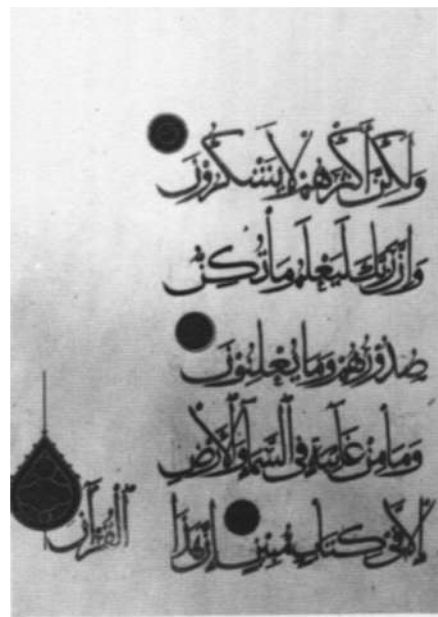 وَلَٰكِنَّ أَكْثَرَهُمْ لَا يَشْكُرُونَ
وَإِنَّ رَبَّكَ لَيَعْلَمُ مَا تُكِنُّ
صُدُورُهُمْ وَمَا يُعْلِنُونَ
وَمَا مِنْ غَائِبَةٍ فِي السَّمَاءِ وَالْأَرْضِ
إِلَّا فِي كِتَابٍ مُبِينٍ إِنَّ هَٰذَا
الْقُرْآنَ